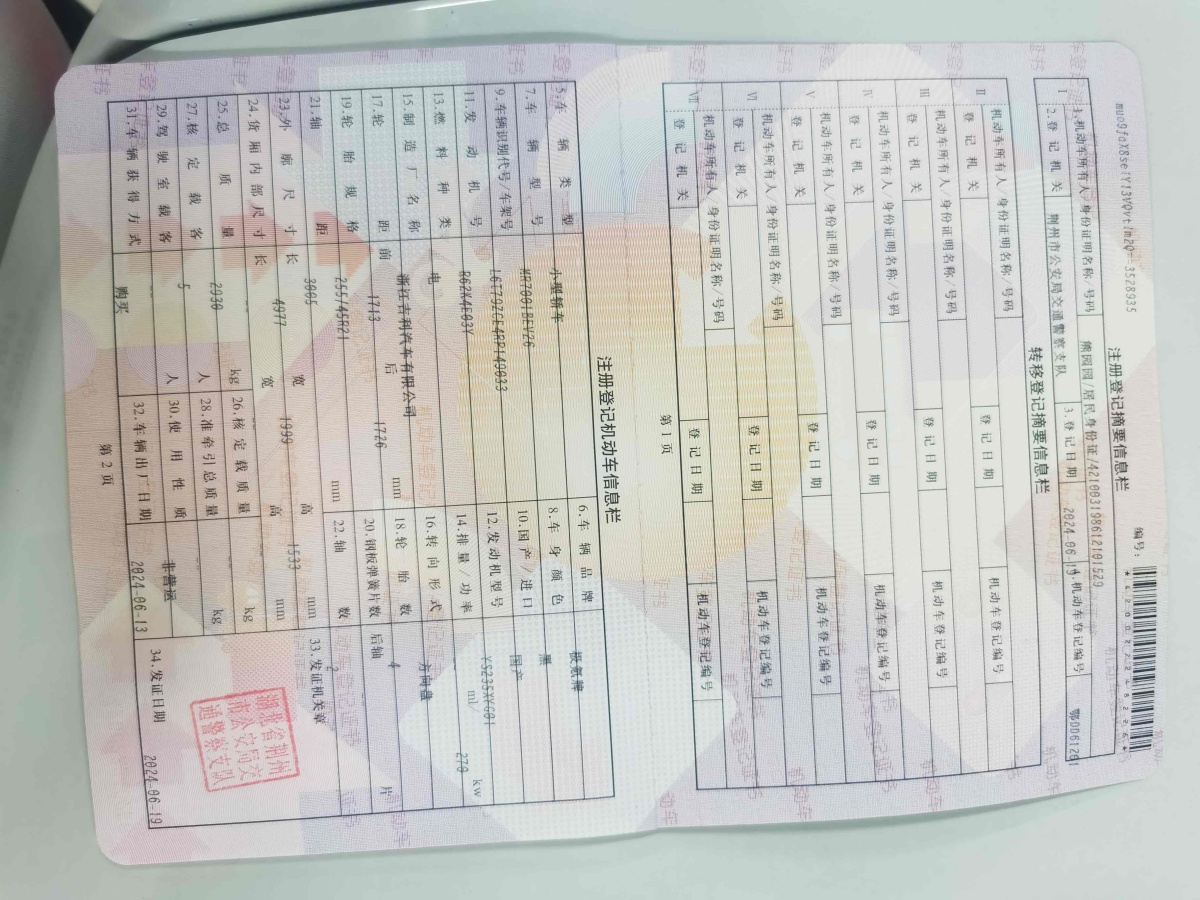 注册登记摘要信息栏
编号：
1.机动车所有人/身份证明名称/号码 熊园园/居民身份证/421003198612101529
2.登记机关 荆州市公安局交通警察支队 3.登记日期 2024-06-19 4.机动车登记编号 鄂DD61261
转移登记摘要信息栏
II 机动车所有人/身份证明名称/号码
登记机关 登记日期 机动车登记编号
III 机动车所有人/身份证明名称/号码
登记机关 登记日期 机动车登记编号
IV 机动车所有人/身份证明名称/号码
登记机关 登记日期 机动车登记编号
V 机动车所有人/身份证明名称/号码
登记机关 登记日期 机动车登记编号
VI 机动车所有人/身份证明名称/号码
登记机关 登记日期 机动车登记编号
VII 机动车所有人/身份证明名称/号码
登记机关 登记日期 机动车登记编号
第1页
注册登记机动车信息栏
5.车辆类型 小型轿车 6.车辆品牌 极氪牌
7.车辆型号 MR7001BEV26 8.车身颜色 黑
9.车辆识别代号/车架号 L6T79ZCE4RP140033 10.国产/进口 国产
11.发动机号 R62X4E03Y 12.发动机型号 YS235XYG01
13.燃料种类 电 14.排量/功率 ml/ 270 kw
15.制造厂名称 浙江吉利汽车有限公司 16.转向形式 方向盘
17.轮距 前 1713 后 1726 mm 18.轮胎数 4
19.轮胎规格 255/45R21 20.钢板弹簧片数 后轴 片
21.轴距 3005 mm 22.轴数 2
23.外廓尺寸 长 4977 宽 1999 高 1533 mm 33.发证机关章
24.货厢内部尺寸 长 宽 高 mm
25.总质量 2930 kg 26.核定载质量 kg
27.核定载客 5 人 28.准牵引总质量 kg
29.驾驶室载客 人 30.使用性质 非营运
31.车辆获得方式 购买 32.车辆出厂日期 2024-06-13 34.发证日期 2024-06-19
湖北省荆州
市公安局交
通警察支队
第2页